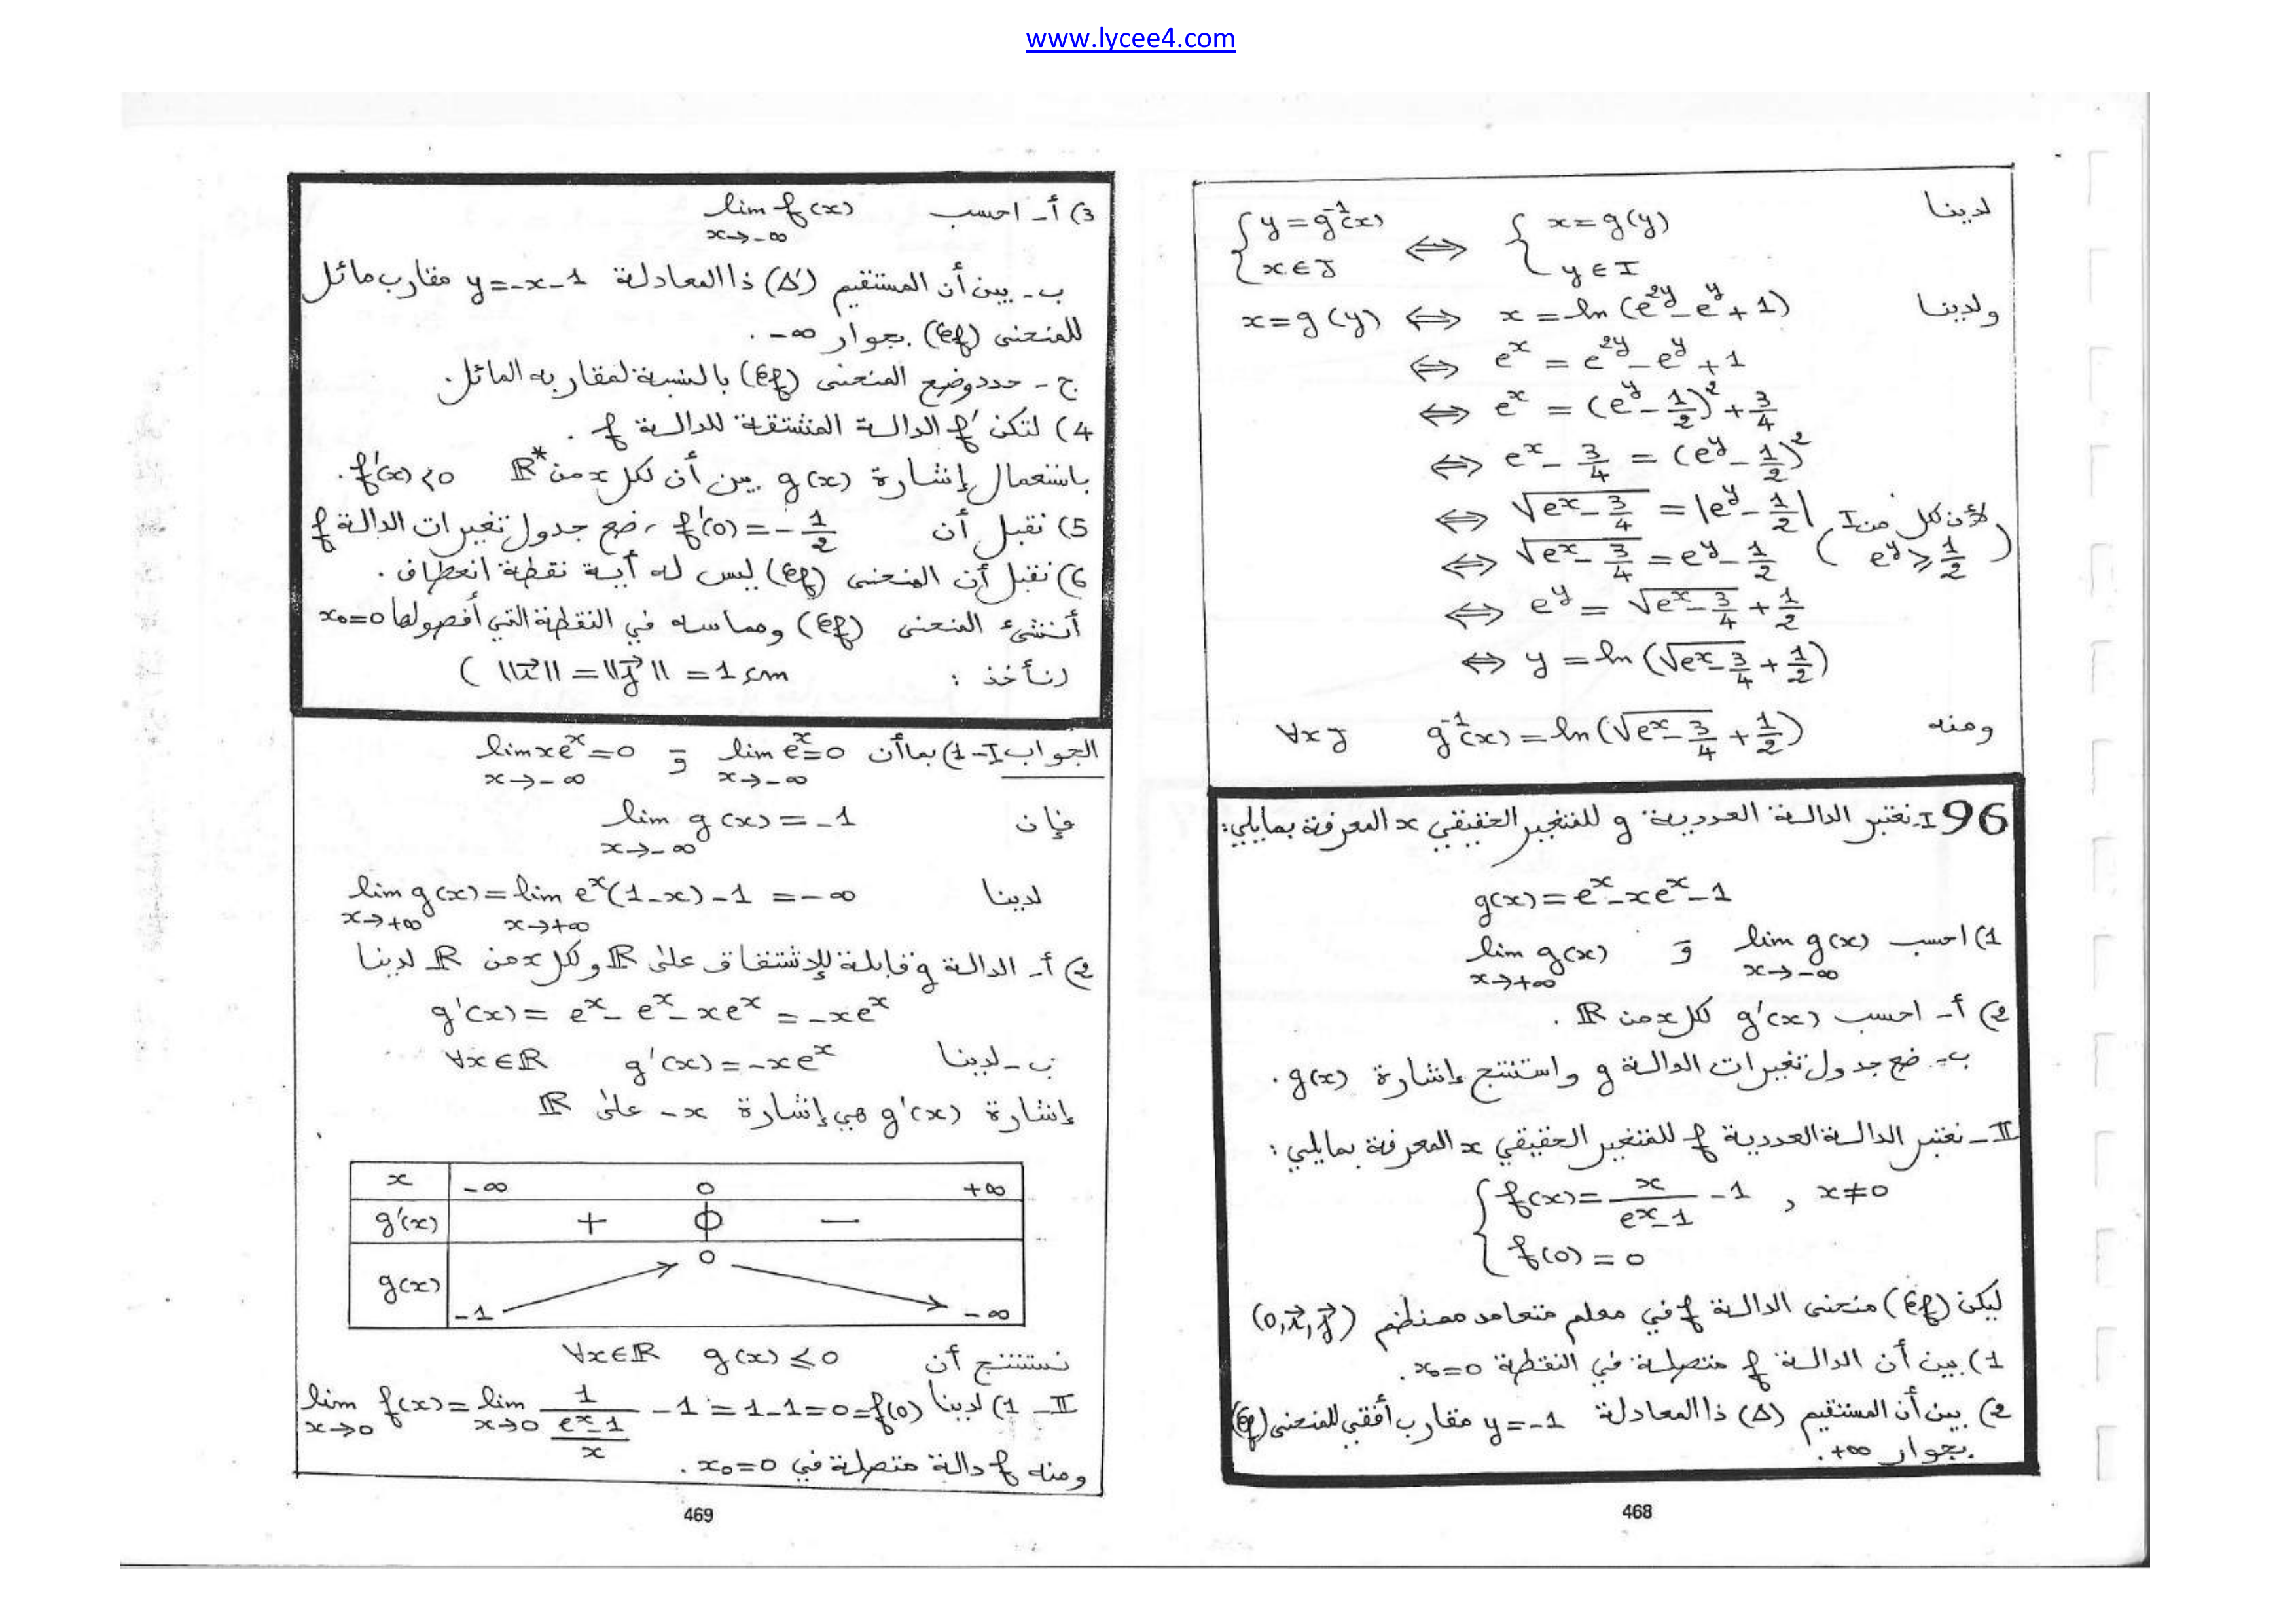 www.lycee4.com
لدينا { y = g⁻¹(x) ; x ∈ J ⟺ { x = g(y) ; y ∈ I
ولدينا x = g(y) ⟺ x = ln(e^{2y} - e^y + 1)
⟺ e^x = e^{2y} - e^y + 1
⟺ e^x = (e^y - 1/2)² + 3/4
⟺ e^x - 3/4 = (e^y - 1/2)²
⟺ √(e^x - 3/4) = |e^y - 1/2|
⟺ √(e^x - 3/4) = e^y - 1/2 (لأن لكل y من I e^y ⩾ 1/2)
⟺ e^y = √(e^x - 3/4) + 1/2
⟺ y = ln(√(e^x - 3/4) + 1/2)
ومنه ∀x J g⁻¹(x) = ln(√(e^x - 3/4) + 1/2)
96 I- نعتبر الدالة العددية g للمتغير الحقيقي x المعرفة بمايلي:
g(x) = e^x - xe^x - 1
1) احسب lim g(x) x→-∞ و lim g(x) x→+∞
2) أ- احسب g'(x) لكل x من ℝ.
ب- ضع جدول تغيرات الدالة g واستنتج إشارة g(x).
II- نعتبر الدالة العددية f للمتغير الحقيقي x المعرفة بمايلي:
{ f(x) = x/(e^x - 1) - 1 , x ≠ 0
f(0) = 0
ليكن (𝒞f) منحنى الدالة f في معلم متعامد ممنظم (0, i⃗, j⃗)
1) بين أن الدالة f متصلة في النقطة x₀=0.
2) بين أن المستقيم (Δ) ذا المعادلة y = -1 مقارب أفقي للمنحنى (𝒞f)
بجوار +∞.
468
3) أ- احسب lim f(x) x→-∞
ب- بين أن المستقيم (Δ') ذا المعادلة y = -x - 1 مقارب مائل
للمنحنى (𝒞f) بجوار -∞.
ج- حدد وضع المنحنى (𝒞f) بالنسبة لمقاربه المائل.
4) لتكن f' الدالة المشتقة للدالة f.
باستعمال إشارة g(x) بين أن لكل x من ℝ* f'(x) < 0.
5) نقبل أن f'(0) = -1/2، ضع جدول تغيرات الدالة f
6) نقبل أن المنحنى (𝒞f) ليس له أية نقطة انعطاف.
أنشئ المنحنى (𝒞f) ومماسه في النقطة التي أفصولها x₀=0
(نأخذ : ||i⃗|| = ||j⃗|| = 1cm)
الجواب I-1) بما أن lim e^x = 0 x→-∞ و lim xe^x = 0 x→-∞
فإن lim g(x) = -1 x→-∞
لدينا lim g(x) x→+∞ = lim e^x(1-x) - 1 x→+∞ = -∞
2) أ- الدالة g قابلة للإشتقاق على ℝ ولكل x من ℝ لدينا
g'(x) = e^x - e^x - xe^x = -xe^x
ب- لدينا g'(x) = -xe^x ∀x ∈ ℝ
إشارة g'(x) هي إشارة -x على ℝ
x -∞ 0 +∞
g'(x) + 0 -
g(x) -1 0 -∞
نستنتج أن ∀x∈ℝ g(x) ⩽ 0
II- 1) لدينا lim f(x) x→0 = lim x→0 1/((e^x - 1)/x) - 1 = 1-1 = 0 = f(0)
ومنه f دالة متصلة في x₀=0.
469